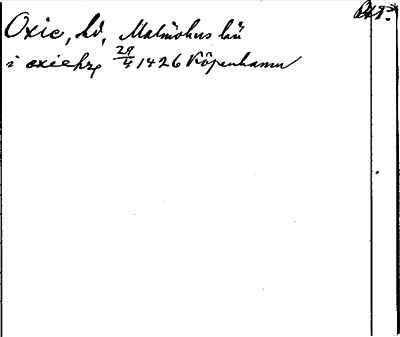 Oxie, hd, Malmöhus län
i oxiehz 29/4 1426 Köpenhamn